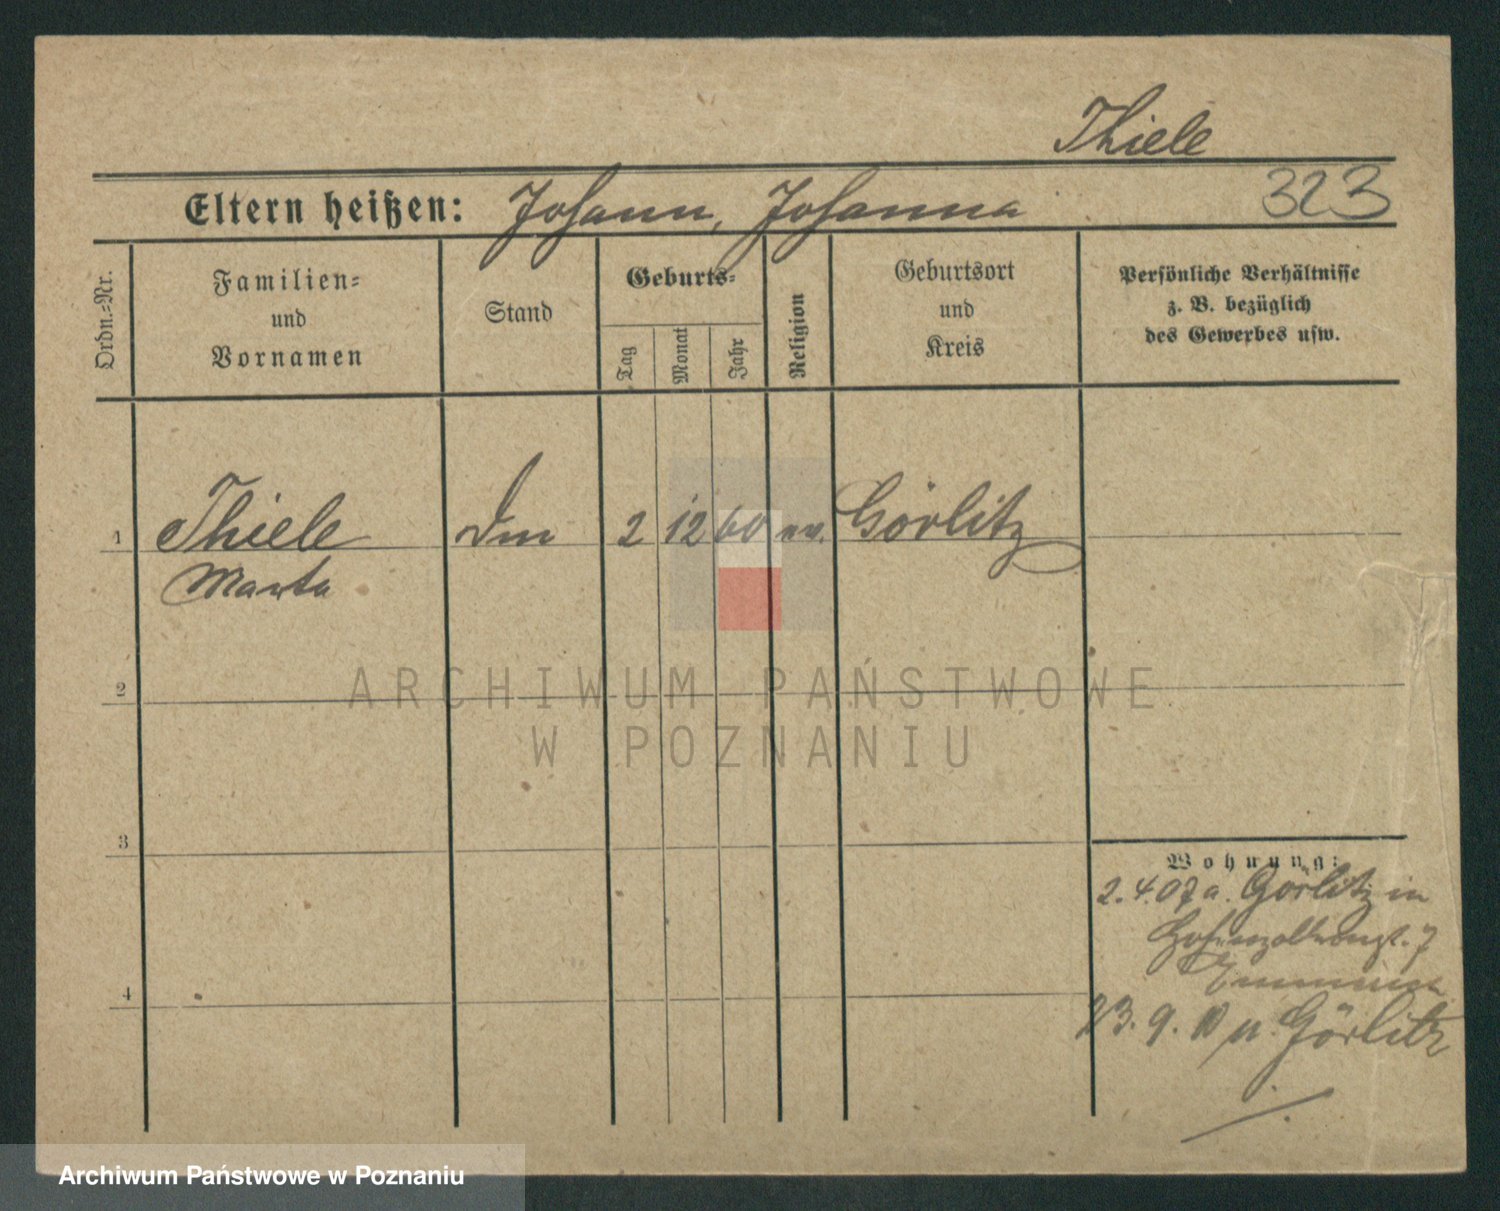 Thiele
Eltern heißen: Johann, Johanna 323
Ordn.=Nr.
Familien=
und
Vornamen
Stand
Geburts=
Tag
Monat
Jahr
Religion
Geburtsort
und
Kreis
Persönliche Verhältnisse
z. B. bezüglich
des Gewerbes usw.
1 Thiele 2 12 60 ev. Görlitz
Marta
2
ARCHIWUM PAŃSTWOWE
W POZNANIU
3
Wohnung:
2.4.07 a. Görlitz in
7
4
23.9. Görlitz
Archiwum Państwowe w Poznaniu